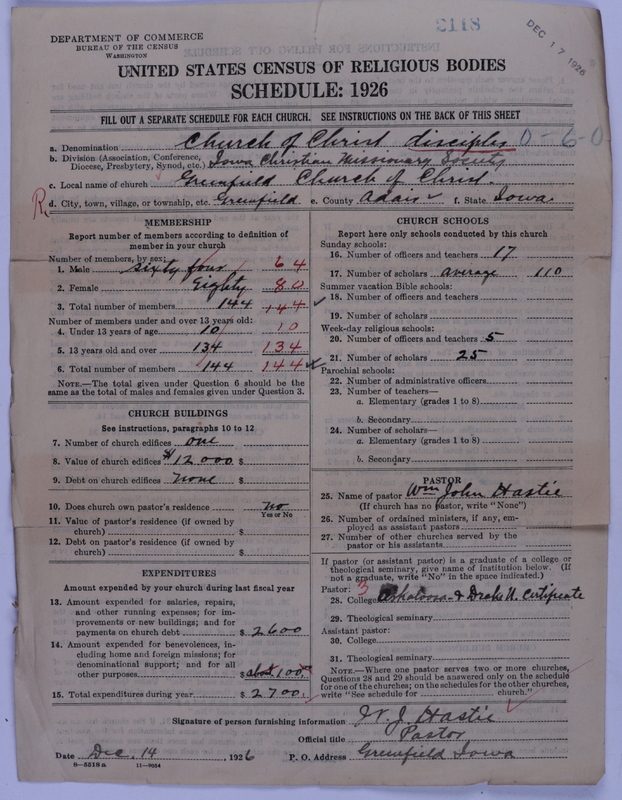 8113
DEC 17 1926
DEPARTMENT OF COMMERCE
BUREAU OF THE CENSUS
WASHINGTON
UNITED STATES CENSUS OF RELIGIOUS BODIES
SCHEDULE: 1926
FILL OUT A SEPARATE SCHEDULE FOR EACH CHURCH. SEE INSTRUCTIONS ON THE BACK OF THIS SHEET
a. Denomination Church of Christ disciples 0-6-0
b. Division (Association, Conference, Diocese, Presbytery, Synod, etc.) Iowa Christian Missionary Society
c. Local name of church Greenfield Church of Christ.
R. d. City, town, village, or township, etc. Greenfield e. County Adair f. State Iowa
MEMBERSHIP
Report number of members according to definition of
member in your church
Number of members, by sex:
1. Male sixty four 64
2. Female Eighty 80
3. Total number of members 144 144
Number of members under and over 13 years old:
4. Under 13 years of age 10 10
5. 13 years old and over 134 134
6. Total number of members 144 144
NOTE.—The total given under Question 6 should be the
same as the total of males and females given under Question 3.
CHURCH BUILDINGS
See instructions, paragraphs 10 to 12
7. Number of church edifices one
8. Value of church edifices $12000 $
9. Debt on church edifices none $
10. Does church own pastor's residence no
Yes or No
11. Value of pastor's residence (if owned by
church) $
12. Debt on pastor's residence (if owned by
church) $
EXPENDITURES
Amount expended by your church during last fiscal year
13. Amount expended for salaries, repairs,
and other running expenses; for im-
provements or new buildings; and for
payments on church debt $ 2600
14. Amount expended for benevolences, in-
cluding home and foreign missions; for
denominational support; and for all
other purposes $ about 100.
15. Total expenditures during year $ 2700.
CHURCH SCHOOLS
Report here only schools conducted by this church
Sunday schools:
16. Number of officers and teachers 17
17. Number of scholars average 110
Summer vacation Bible schools:
18. Number of officers and teachers
19. Number of scholars
Week-day religious schools:
20. Number of officers and teachers 5
21. Number of scholars 25
Parochial schools:
22. Number of administrative officers
23. Number of teachers—
a. Elementary (grades 1 to 8)
b. Secondary
24. Number of scholars—
a. Elementary (grades 1 to 8)
b. Secondary
PASTOR
25. Name of pastor Wm John Hastie
(If church has no pastor, write "None")
26. Number of ordained ministers, if any, em-
ployed as assistant pastors
27. Number of other churches served by the
pastor or his assistants
If pastor (or assistant pastor) is a graduate of a college or
theological seminary, give name of institution below. (If
not a graduate, write "No" in the space indicated.)
Pastor: 3
28. College Oskaloosa & Drake U. Certificate
29. Theological seminary
Assistant pastor:
30. College
31. Theological seminary
NOTE.—Where one pastor serves two or more churches,
Questions 28 and 29 should be answered only on the schedule
for one of the churches; on the schedules for the other churches,
write "See schedule for church."
Signature of person furnishing information W. J. Hastie
Official title Pastor
Date Dec. 14, 1926 P. O. Address Greenfield Iowa
8-5518a 11-9054